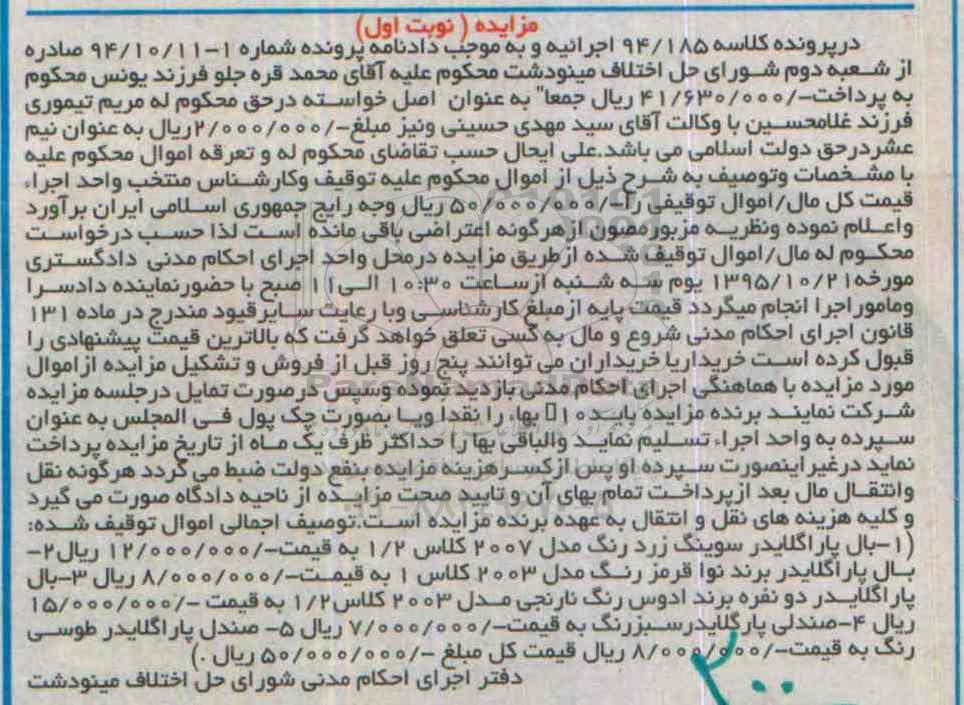 مزایده ( نوبت اول)
درپرونده کلاسه ۹۴/۱۸۵ اجرائیه و به موجب دادنامه پرونده شماره ۱-۹۴/۱۰/۱۱ صادره
از شعبه دوم شورای حل اختلاف مینودشت محکوم علیه آقای محمد قره جلو فرزند یونس محکوم
به پرداخت-/۴۱/۶۳۰/۰۰۰ ریال جمعا" به عنوان اصل خواسته درحق محکوم له مریم تیموری
فرزند غلامحسین با وکالت آقای سید مهدی حسینی ونیز مبلغ-/۲/۰۰۰/۰۰۰ریال به عنوان نیم
عشردرحق دولت اسلامی می باشد.علی ایحال حسب تقاضای محکوم له و تعرقه اموال محکوم علیه
با مشخصات وتوصیف به شرح ذیل از اموال محکوم علیه توقیف وکارشناس منتخب واحد اجراء
قیمت کل مال/اموال توقیفی را-/۵۰/۰۰۰/۰۰۰ ریال وجه رایج جمهوری اسلامی ایران برآورد
واعلام نموده ونظریه مزبورمصون ازهرگونه اعتراضی باقی مانده است لذا حسب درخواست
محکوم له مال/اموال توقیف شده ازطریق مزایده درمحل واحد اجرای احکام مدنی دادگستری
مورخه۱۳۹۵/۱۰/۲۱ یوم سه شنبه ازساعت ۱۰:۳۰ الی۱۱ صبح با حضورنماینده دادسرا
وماموراجرا انجام میگردد قیمت پایه ازمبلغ کارشناسی وبا رعایت سایرقیود مندرج در ماده ۱۳۱
قانون اجرای احکام مدنی شروع و مال به کسی تعلق خواهد گرفت که بالاترین قیمت پیشنهادی را
قبول کرده است خریداریا خریداران می توانند پنج روز قبل از فروش و تشکیل مزایده ازاموال
مورد مزایده با هماهنگی اجرای احکام مدنی بازدید نموده وسپس درصورت تمایل درجلسه مزایده
شرکت نمایند برنده مزایده باید۱۰ بهاء را نقدا ویا بصورت چک پول فی المجلس به عنوان
سپرده به واحد اجراء تسلیم نماید والباقی بها را حداکثر ظرف یک ماه از تاریخ مزایده پرداخت
نماید درغیراینصورت سپرده او پس ازکسرهزینه مزایده بنفع دولت ضبط می گردد هرگونه نقل
وانتقال مال بعد ازپرداخت تمام بهای آن و تایید صحت مزایده از ناحیه دادگاه صورت می گیرد
و کلیه هزینه های نقل و انتقال به عهده برنده مزایده است.توصیف اجمالی اموال توقیف شده:
(۱-بال پاراگلایدر سوینگ زرد رنگ مدل ۲۰۰۷ کلاس ۱/۲ به قیمت-/۱۲/۰۰۰/۰۰۰ ریال۲-
بال پاراگلایدر برند نوا قرمز رنگ مدل ۲۰۰۳ کلاس ۱ به قیمت-/۸/۰۰۰/۰۰۰ ریال ۳-بال
پاراگلایدر دو نفره برند ادوس رنگ نارنجی مدل ۲۰۰۳ کلاس۱/۲ به قیمت -/۱۵/۰۰۰/۰۰۰
ریال ۴-صندلی پارگلایدرسبزرنگ به قیمت-/۷/۰۰۰/۰۰۰ ریال ۵- صندل پاراگلایدر طوسی
رنگ به قیمت-/۸/۰۰۰/۰۰۰ ریال قیمت کل مبلغ -/۵۰/۰۰۰/۰۰۰ ریال .)
دفتر اجرای احکام مدنی شورای حل اختلاف مینودشت
۲۰۰